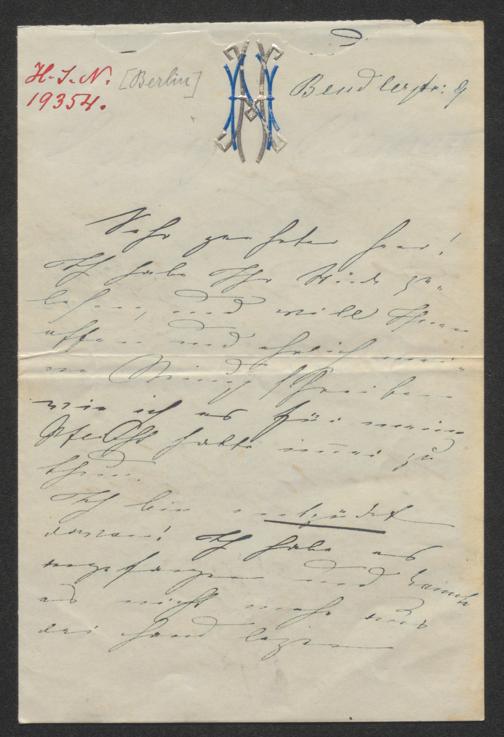 H. I. N.
19354.
[Berlin]
Bendlerstr: 9
Sehr geehrter Herr!
Ich habe Ihr Stück ge-
lesen, und will Ihnen
offen und ehrlich mei-
ne Meinung schreiben
wie ich es für meine
Pflicht halte immer zu
thun.
Ich bin entzückt
davon! Ich habe es
angefangen und konnte
es nicht mehr aus
der Hand legen